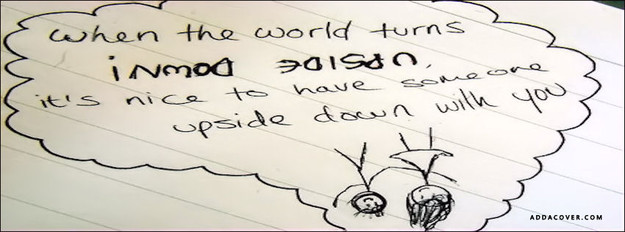 when the world turns
UPSIDE DOWN!
it's nice to have someone
upside down with you
ADDACOVER.COM